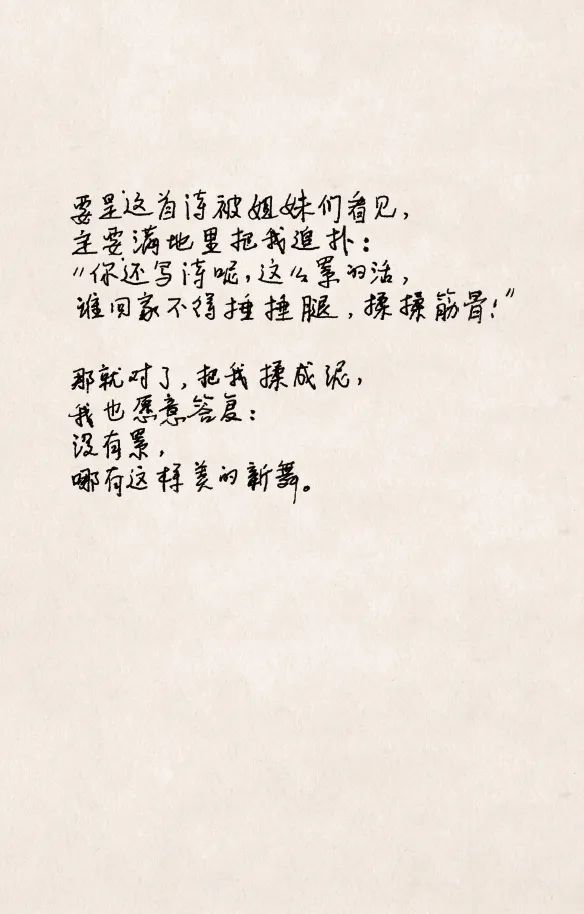 要是这首诗被姐妹们看见，
定要满地里把我追扑：
“你还写诗呢，这么累的活，
谁回家不得捶捶腿，揉揉筋骨！”
那就对了，把我揉成泥，
我也愿意答复：
没有累，
哪有这样美的新舞。